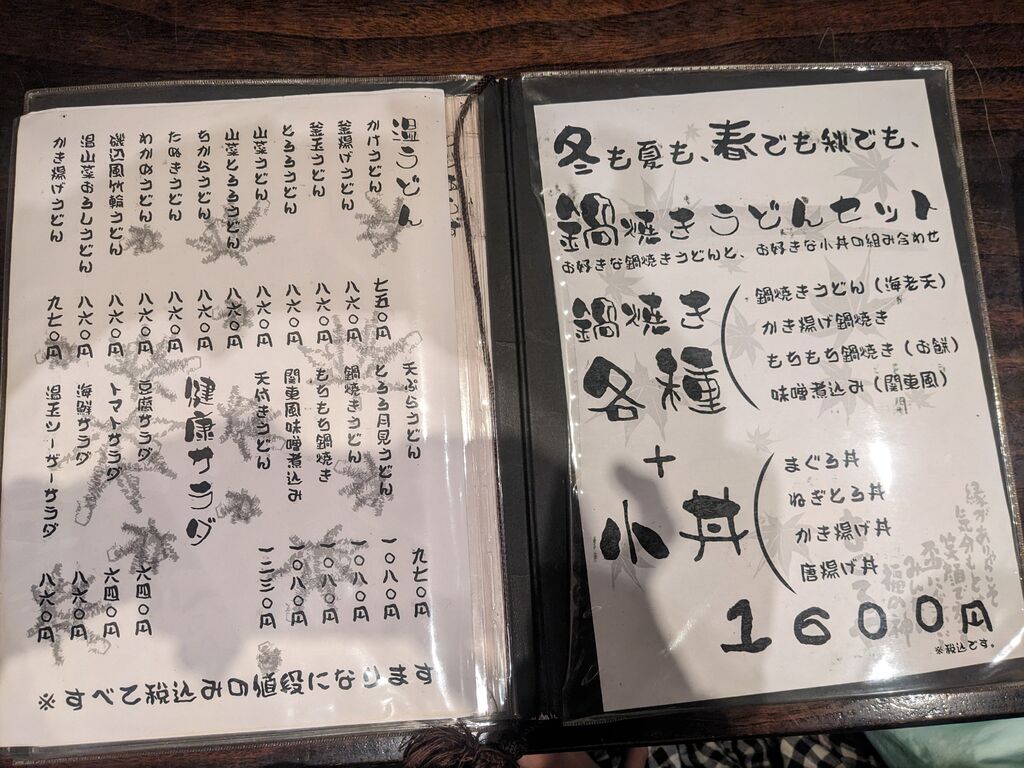 温うどん
かけうどん 七五〇円
釜揚げうどん 八六〇円
釜玉うどん 八六〇円
とろろうどん 八六〇円
山菜うどん 八六〇円
山菜とろろうどん 八六〇円
ちからうどん 八六〇円
たぬきうどん 八六〇円
わかめうどん 八六〇円
磯辺風竹輪うどん 八六〇円
温山菜おろしうどん 八六〇円
かき揚げうどん 九七〇円
天ぷらうどん 九七〇円
とろろ月見うどん 一〇八〇円
鍋焼きうどん 一〇八〇円
もちもち鍋焼き 一〇八〇円
関東風味噌煮込み 一〇八〇円
天付きうどん 一二三〇円
健康サラダ
豆腐サラダ 六四〇円
トマトサラダ 六四〇円
海鮮サラダ 八六〇円
温玉シーザーサラダ 八六〇円
※すべて税込みの値段になります
冬も夏も、春でも秋でも、
鍋焼きうどんセット
お好きな鍋焼きうどんと、お好きな小丼の組み合わせ
鍋焼き
各種
鍋焼きうどん(海老天)
かき揚げ鍋焼き
もちもち鍋焼き(お餅)
味噌煮込み(関東風)
+
小丼
まぐろ丼
ねぎとろ丼
かき揚げ丼
唐揚げ丼
1600円
※税込です。